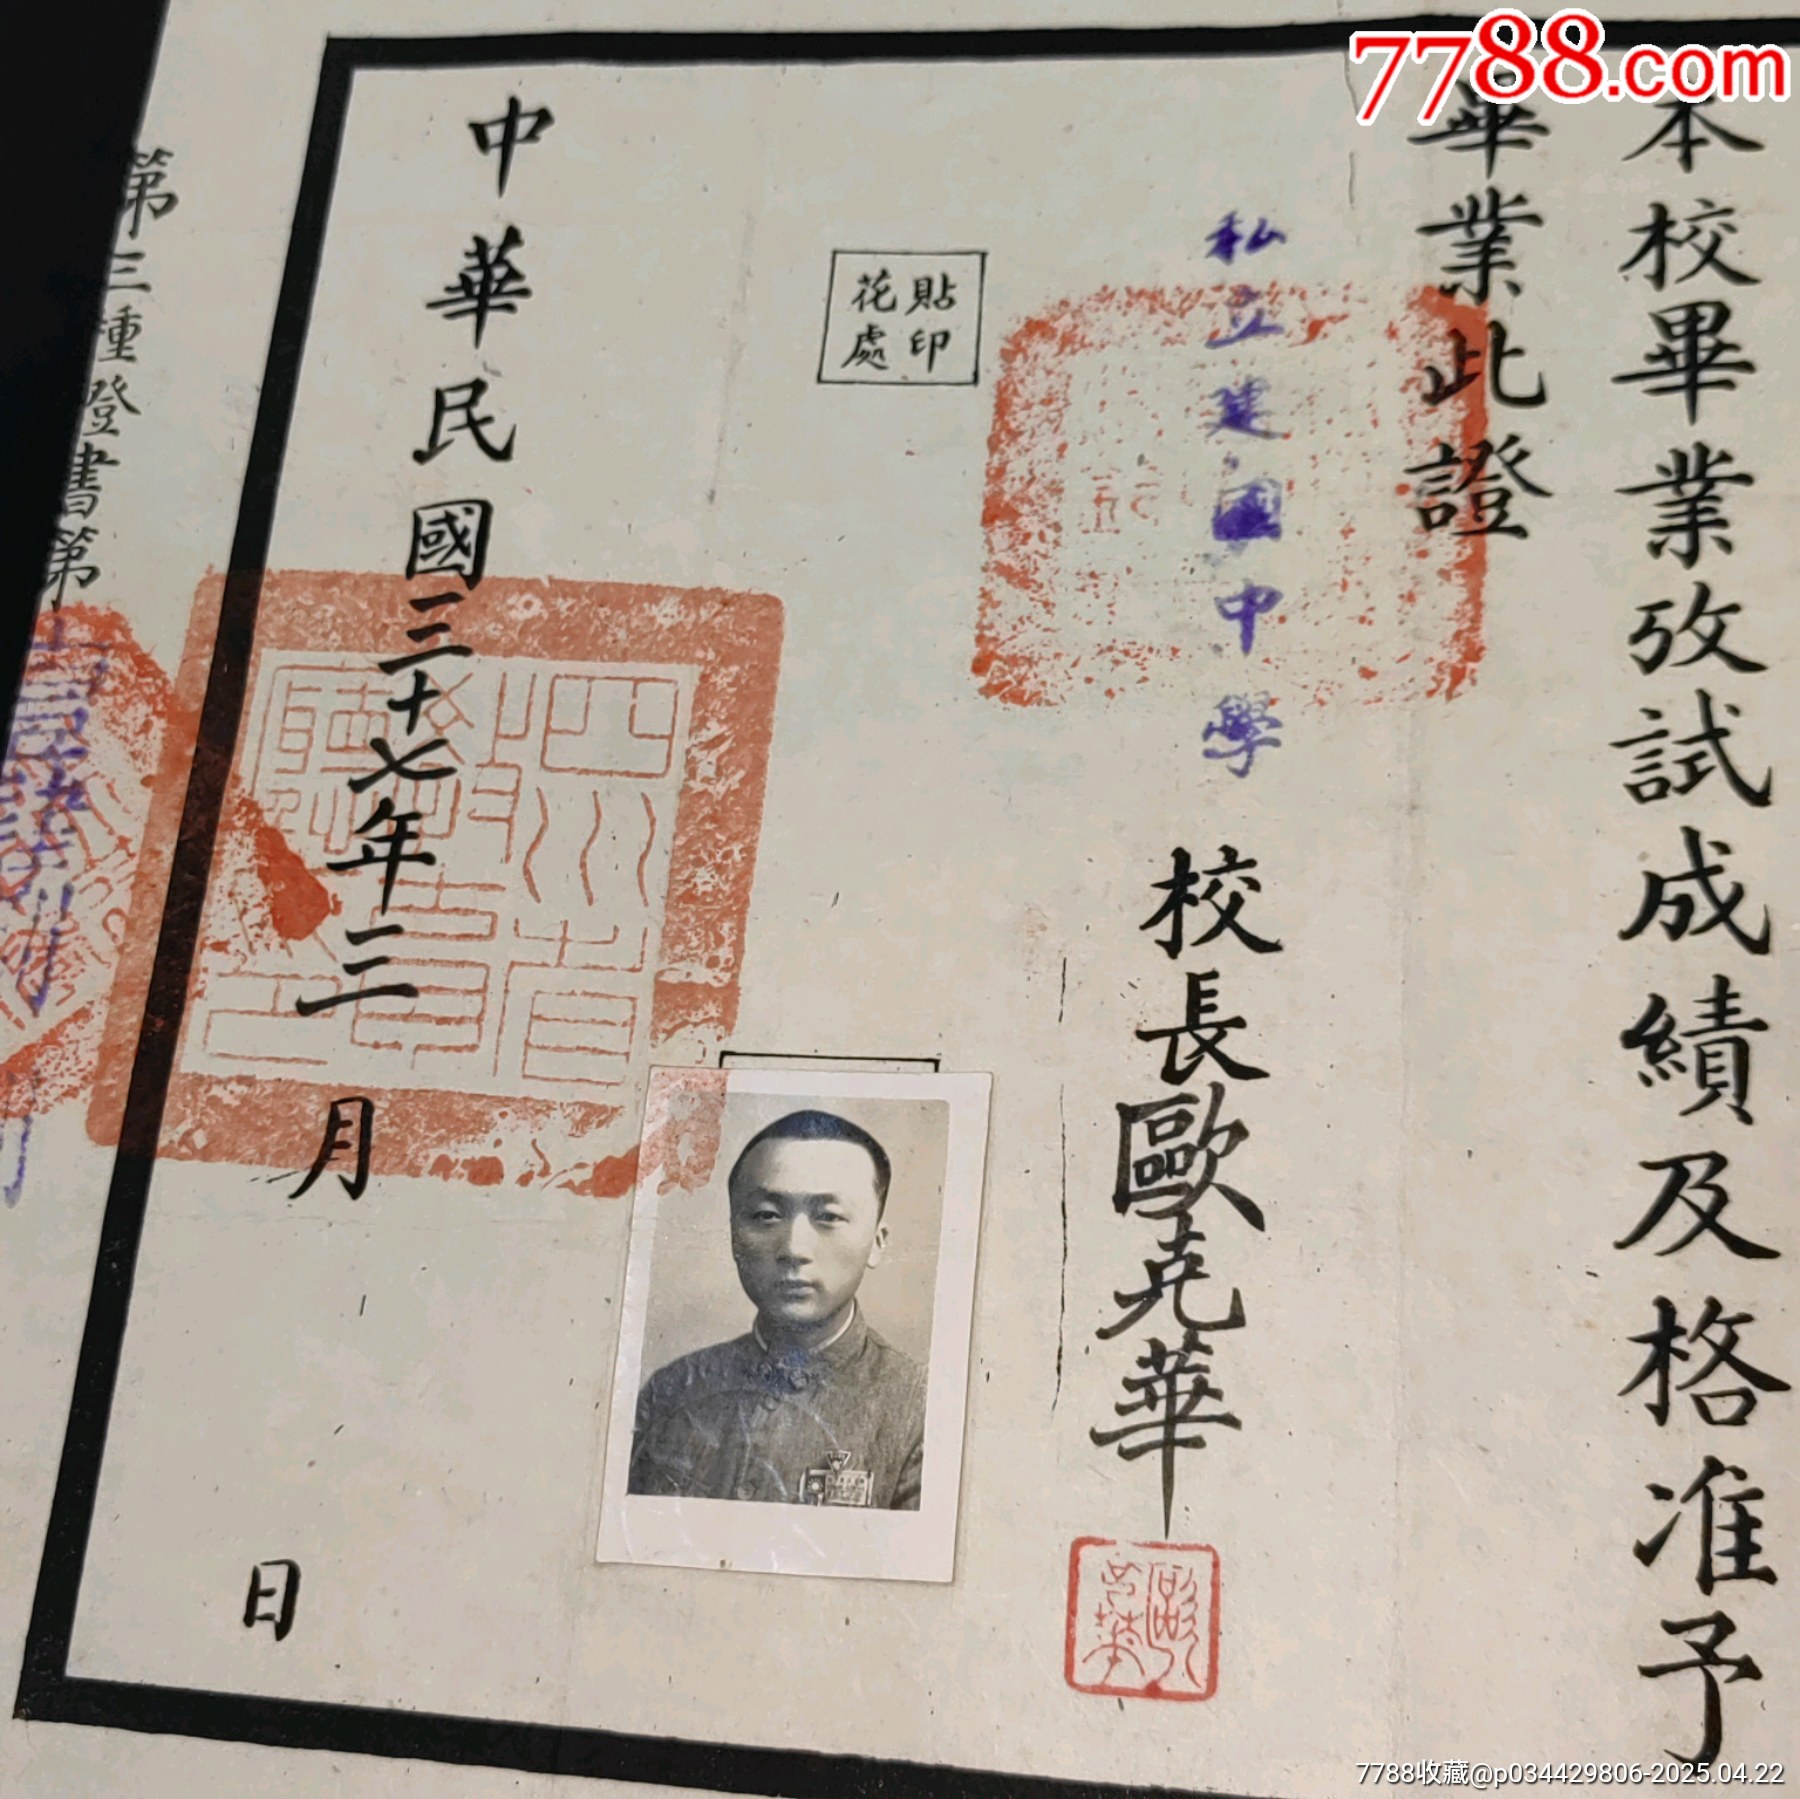 7788.com
本校畢業攷試成績及格准予
畢業此證
私立建國中學
校長歐克華
貼印
花處
中華民國三十七年二月 日
四川省
政府教
育廳印
第三種證書第
7788收藏@p034429806-2025.04.22